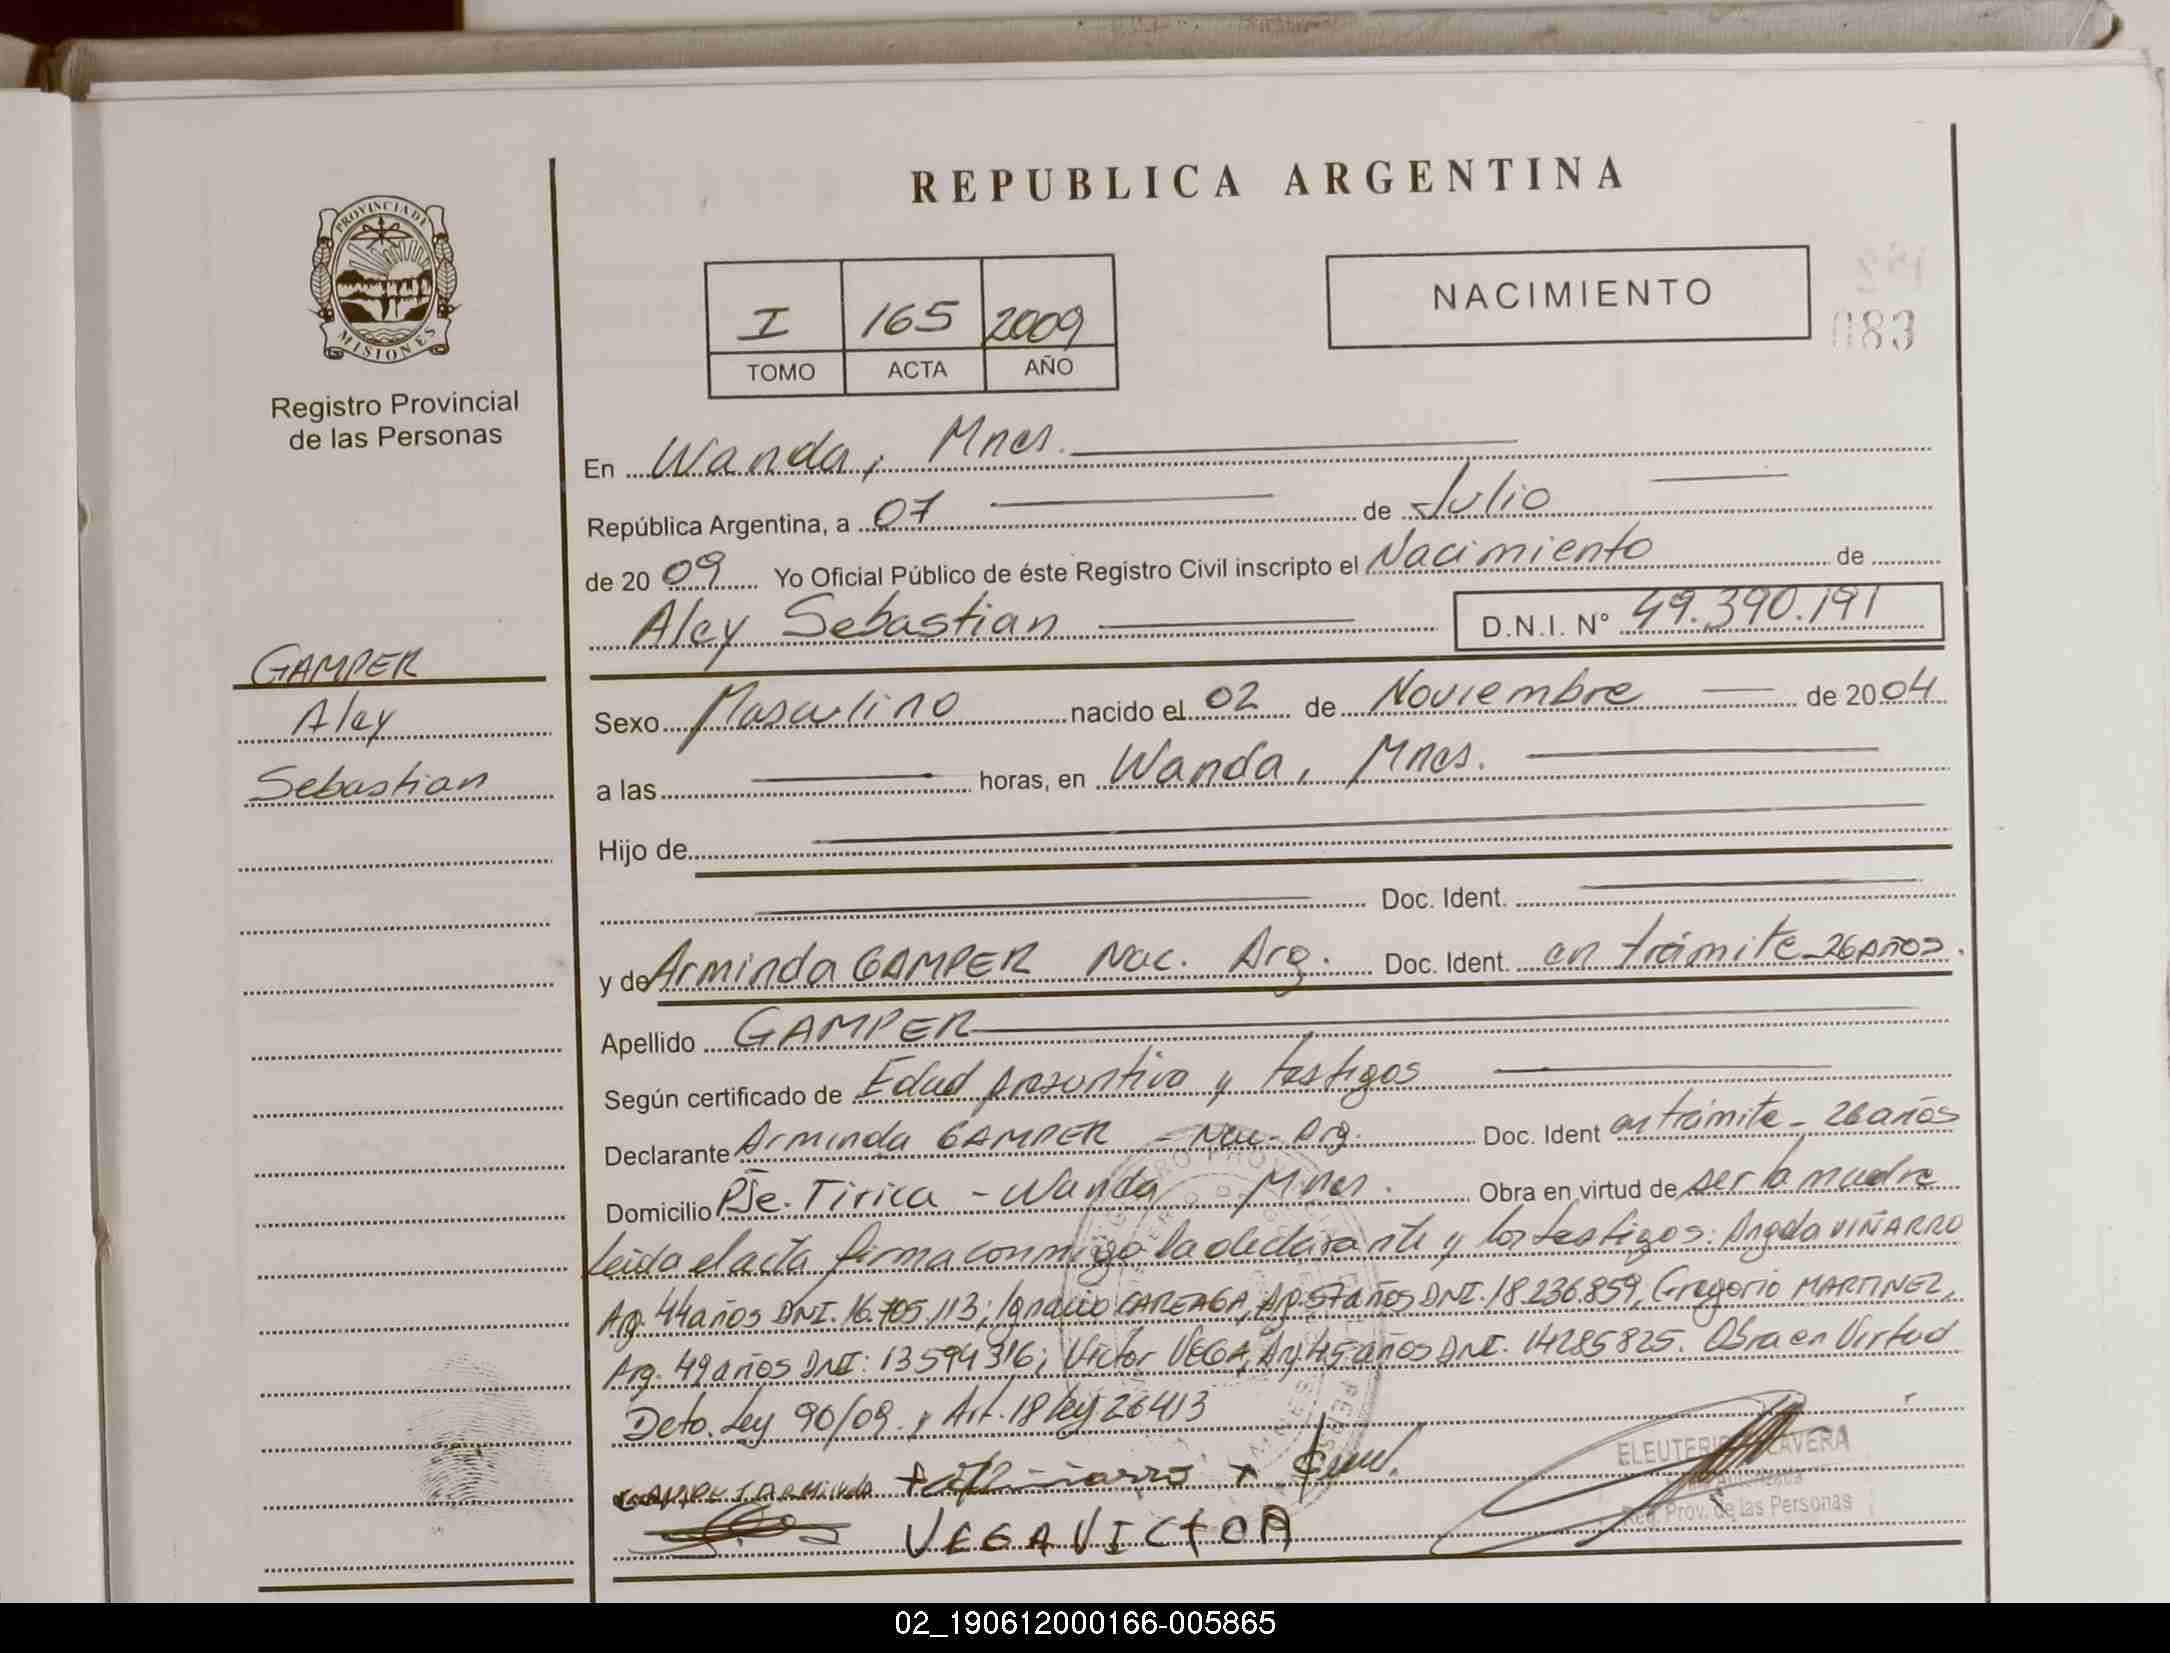 REPUBLICA ARGENTINA
PROVINCIA DE
MISIONES
Registro Provincial
de las Personas
I 165 2009
TOMO ACTA AÑO
NACIMIENTO
083
En Wanda, Mnes.
República Argentina, a 07 de Julio
de 20 09 Yo Oficial Público de éste Registro Civil inscripto el Nacimiento de
Aley Sebastian D.N.I. N° 49.390.191
GAMPER
Aley
Sebastian
Sexo Masculino nacido el 02 de Noviembre de 2004
a las horas, en Wanda, Mnes.
Hijo de
Doc. Ident.
y de Arminda GAMPER Nac. Arg. Doc. Ident. en trámite 26 años.
Apellido GAMPER
Según certificado de Edad presuntiva y testigos
Declarante Arminda GAMPER - Nac. Arg. Doc. Ident en trámite - 26 años
Domicilio Pje. Tirica - Wanda Mnes. Obra en virtud de ser la madre
Leida el acta firma conmigo la declarante y los testigos: Angela VIÑARRO
Arg. 44 años DNI. 16.705.113; Ignacio CAREAGA, Arg. 57 años DNI. 18.236.859, Gregorio MARTINEZ,
Arg. 49 años DNI: 13594316; Victor VEGA, Arg 45 años DNI. 14285825. Obra en Virtud
Dcto. Ley 90/09. y Art. 18 ley 26413
GAMPER ARMINDA
VEGA VICTOR
Reg. Prov. de las Personas
02_190612000166-005865